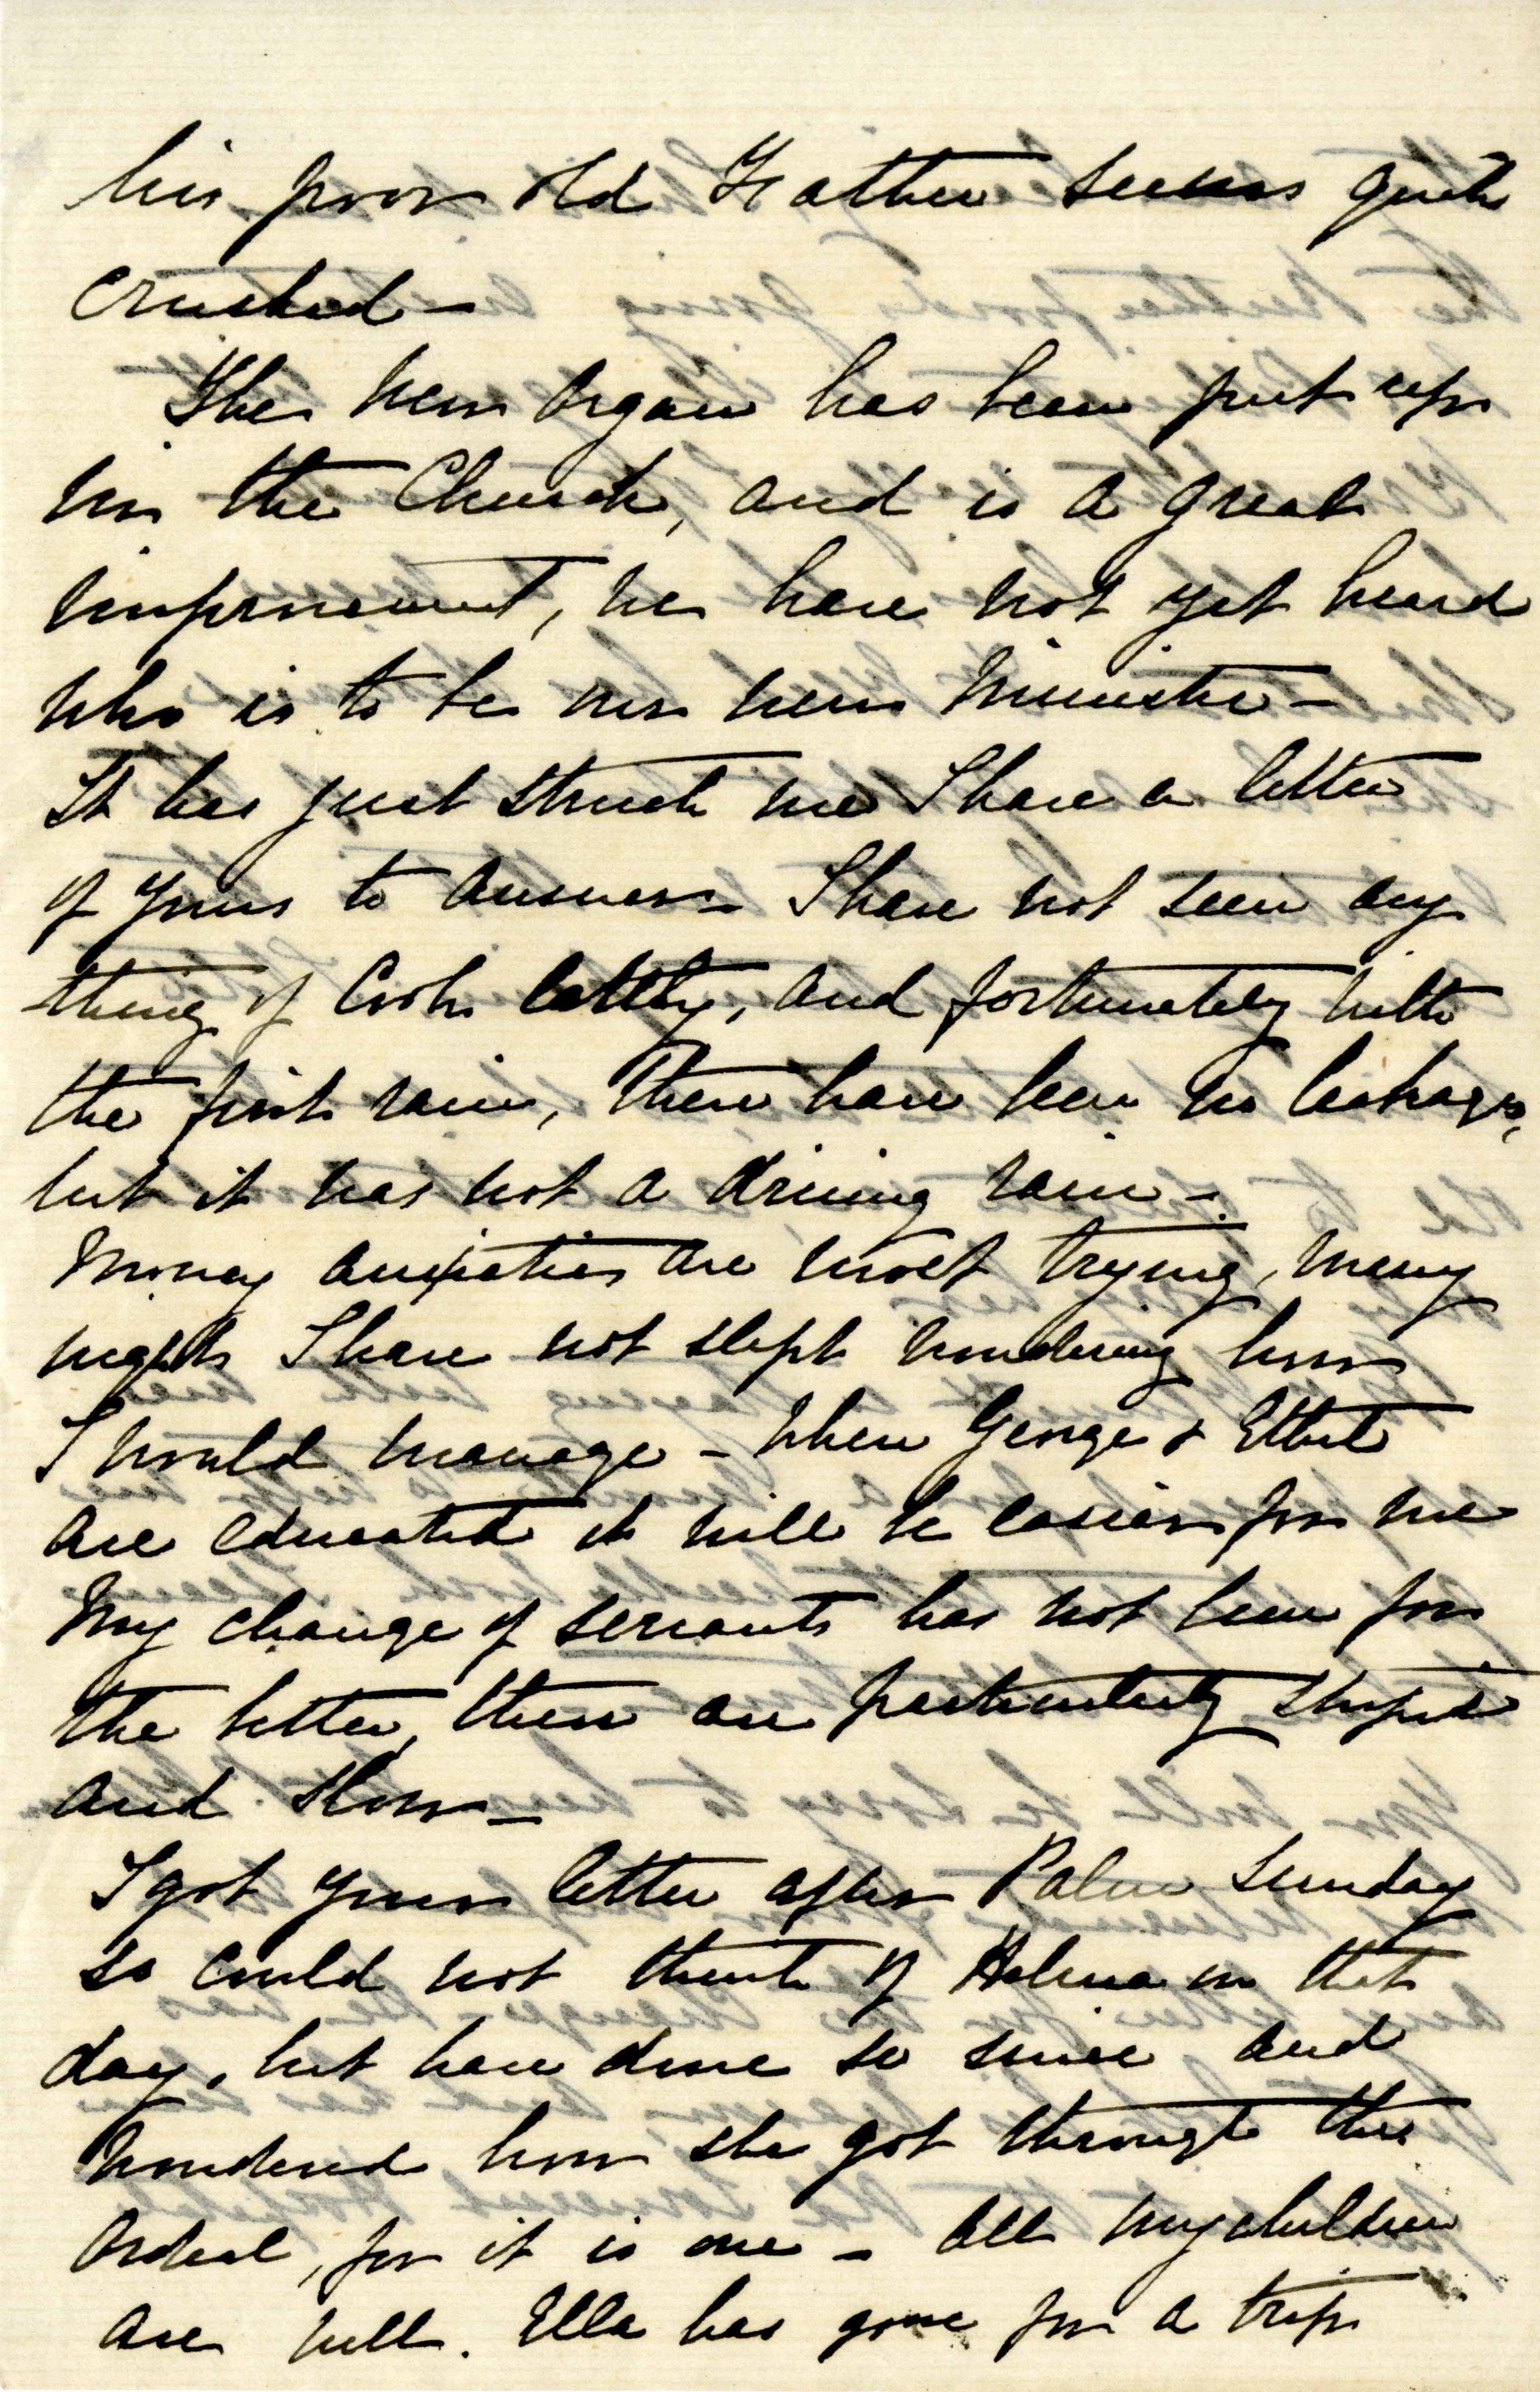 his poor old Father seems quite
crushed –
The new Organ has been put up
in the Church, and is a great
improvement, we have not yet heard
who is to be our new Minister –
It has just struck me I have a letter
of yours to answer – I have not seen any
thing of Cook lately, and fortunately with
the first rain, there have been no leakages,
but it was not a driving rain –
Money anxieties are most trying, many
nights I have not slept wondering how
I would manage – When George & Ethel
are educated it will be easier for me
My change of servants has not been for
the better, these are particularly stupid
and slow –
I got your letter after Palm Sunday
so could not think of Helena on that
day, but have done so since and
wondered how she got through the
Ordeal, for it is one – All my children
are well. Ella has gone for a trip